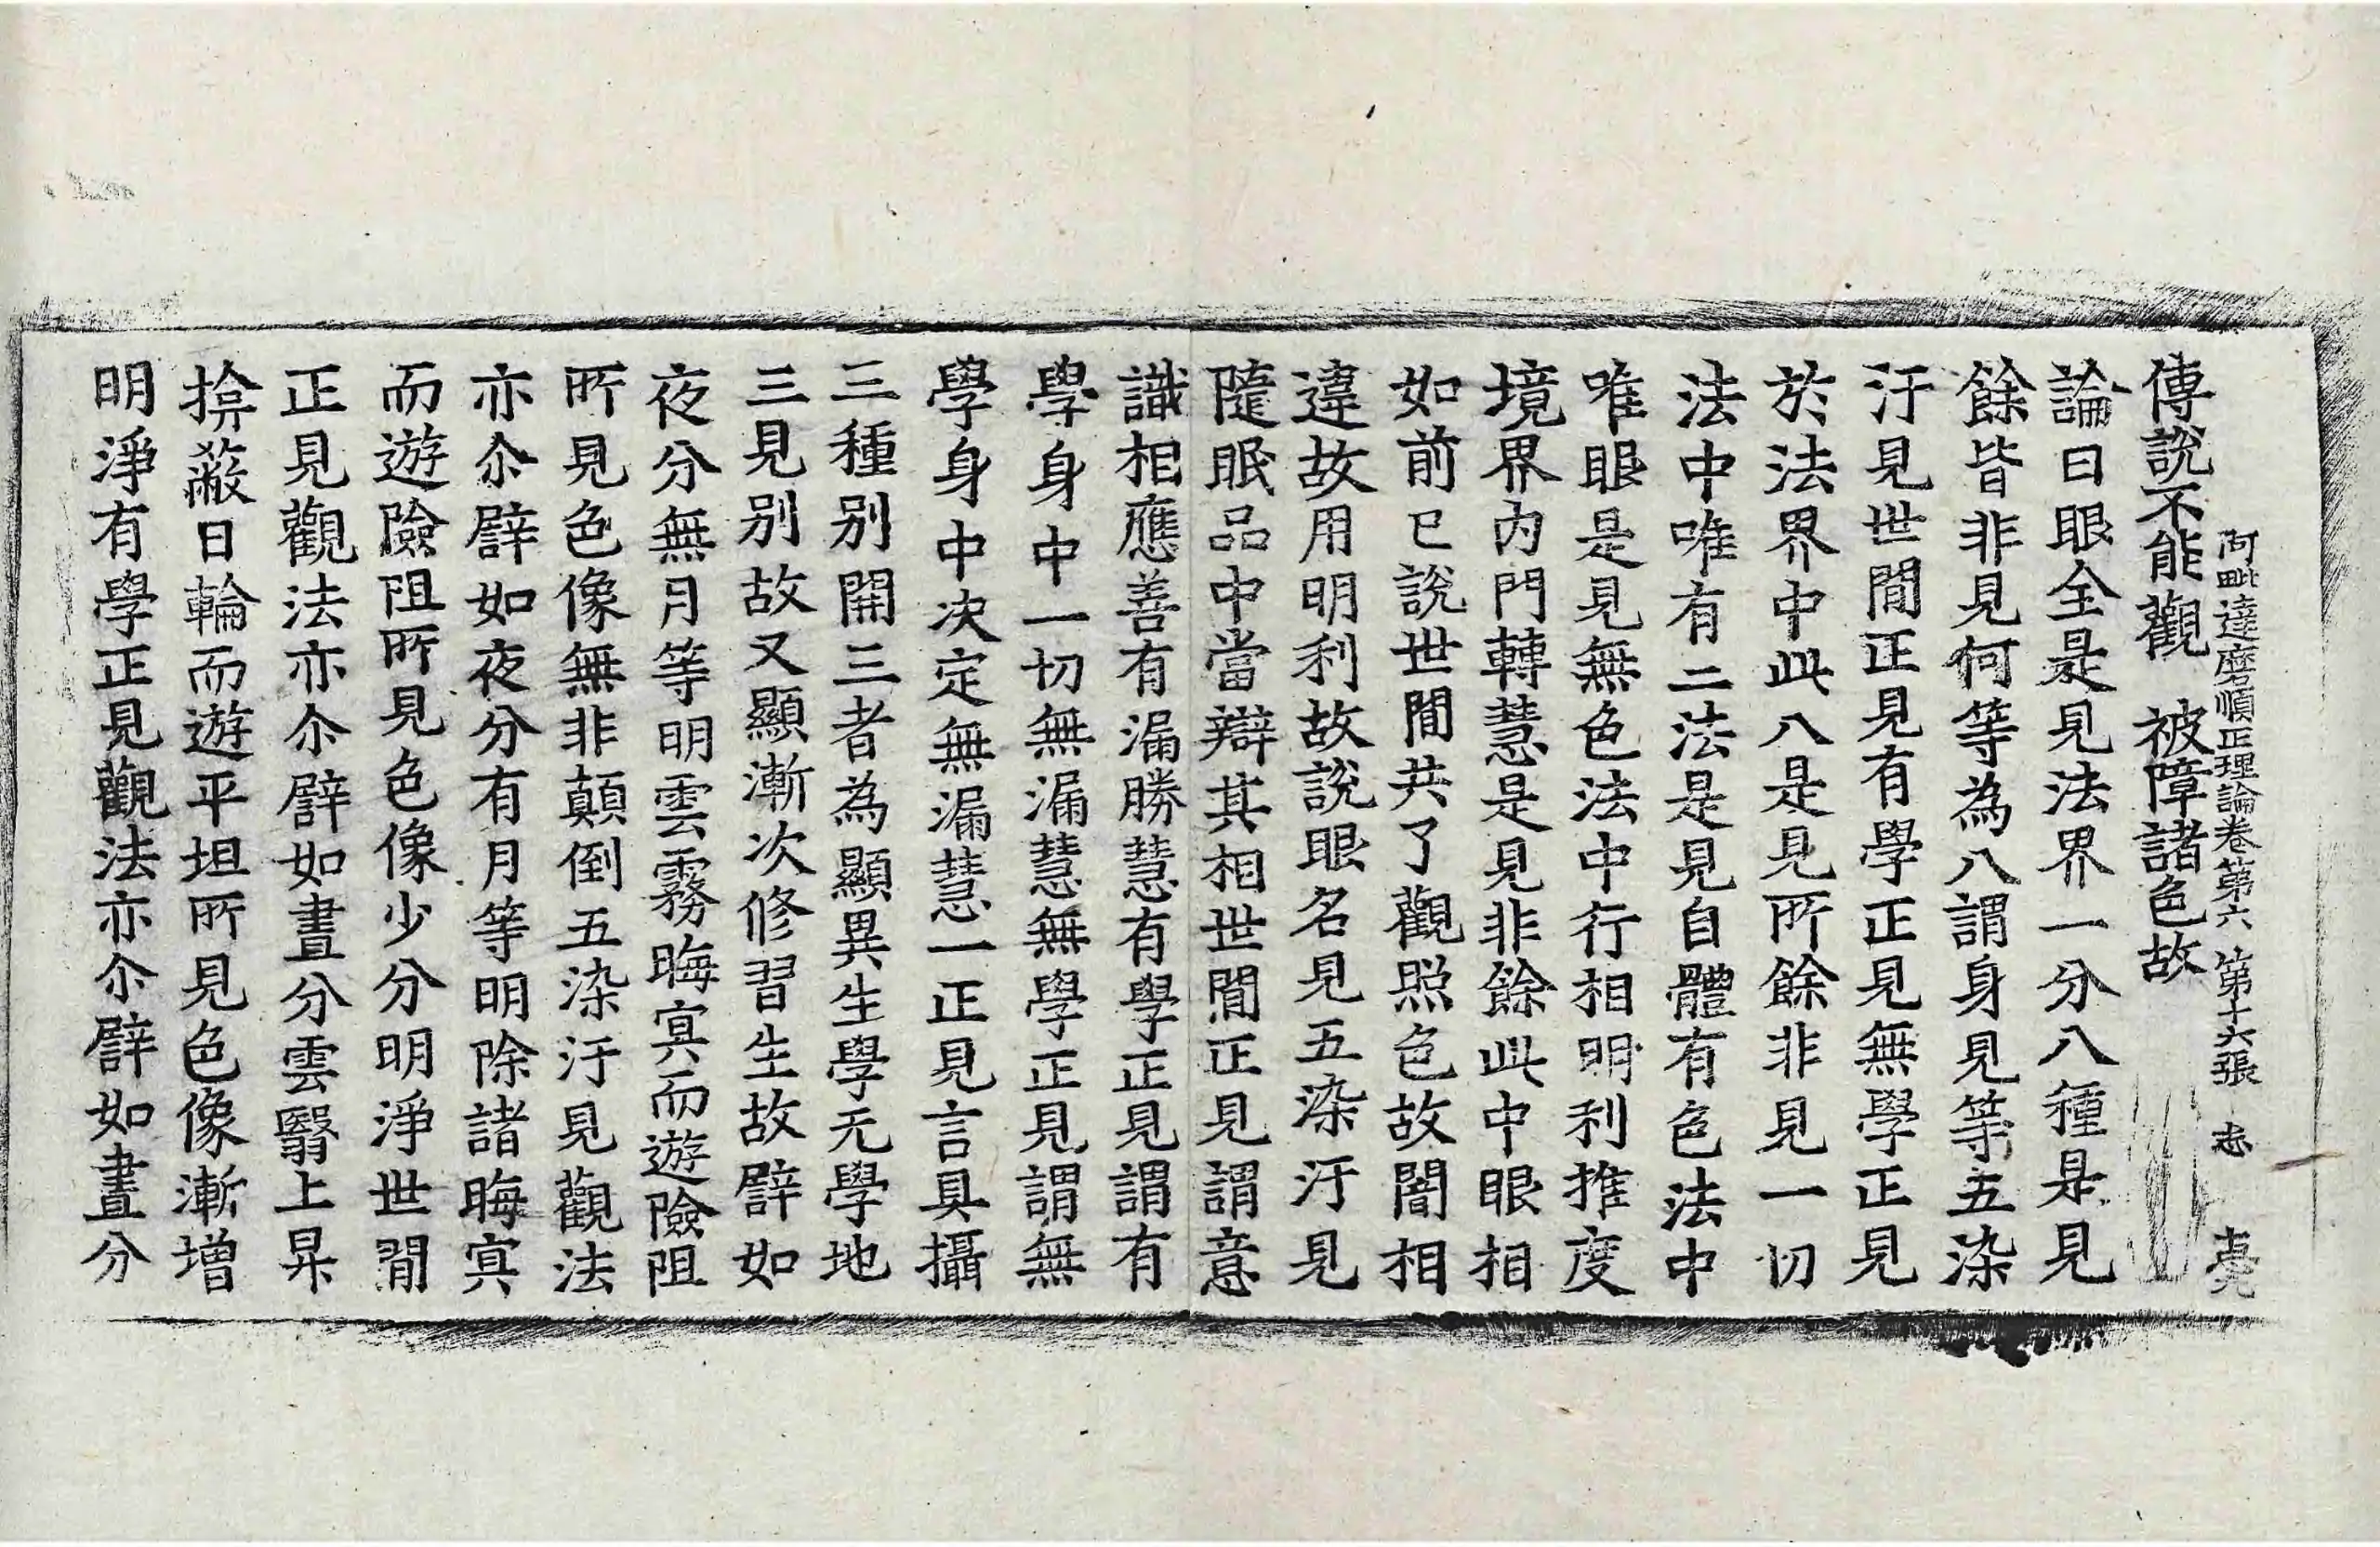 阿毗達磨順正理論卷第六　第十六張　志
傳說不能觀　被障諸色故
論曰眼全是見法界一分八種是見
餘皆非見何等為八謂身見等五染
汙見世間正見有學正見無學正見
於法界中此八是見所餘非見一切
法中唯有二法是見自體有色法中
唯眼是見無色法中行相明利推度
境界內門轉慧是見非餘此中眼相
如前已說世間共了觀照色故闇相
違故用明利故說眼名見五染汙見
隨眠品中當辯其相世間正見謂意
識相應善有漏勝慧有學正見謂有
學身中一切無漏慧無學正見謂無
學身中決定無漏慧一正見言具攝
三種別開三者為顯異生學无學地
三見別故又顯漸次修習生故譬如
夜分無月等明雲霧晦冥而遊險阻
所見色像無非顛倒五染汙見觀法
亦尒譬如夜分有月等明除諸晦冥
而遊險阻所見色像少分明淨世間
正見觀法亦尒譬如晝分雲翳上昇
揜蔽日輪而遊平坦所見色像漸增
明淨有學正見觀法亦尒譬如晝分